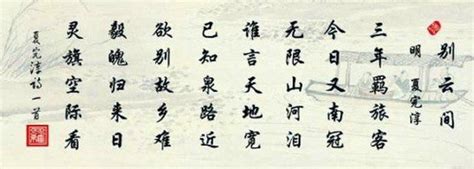 别云间
明 夏完淳
三年羁旅客
今日又南冠
无限山河泪
谁言天地宽
已知泉路近
欲别故乡难
毅魄归来日
灵旗空际看
夏完淳诗一首